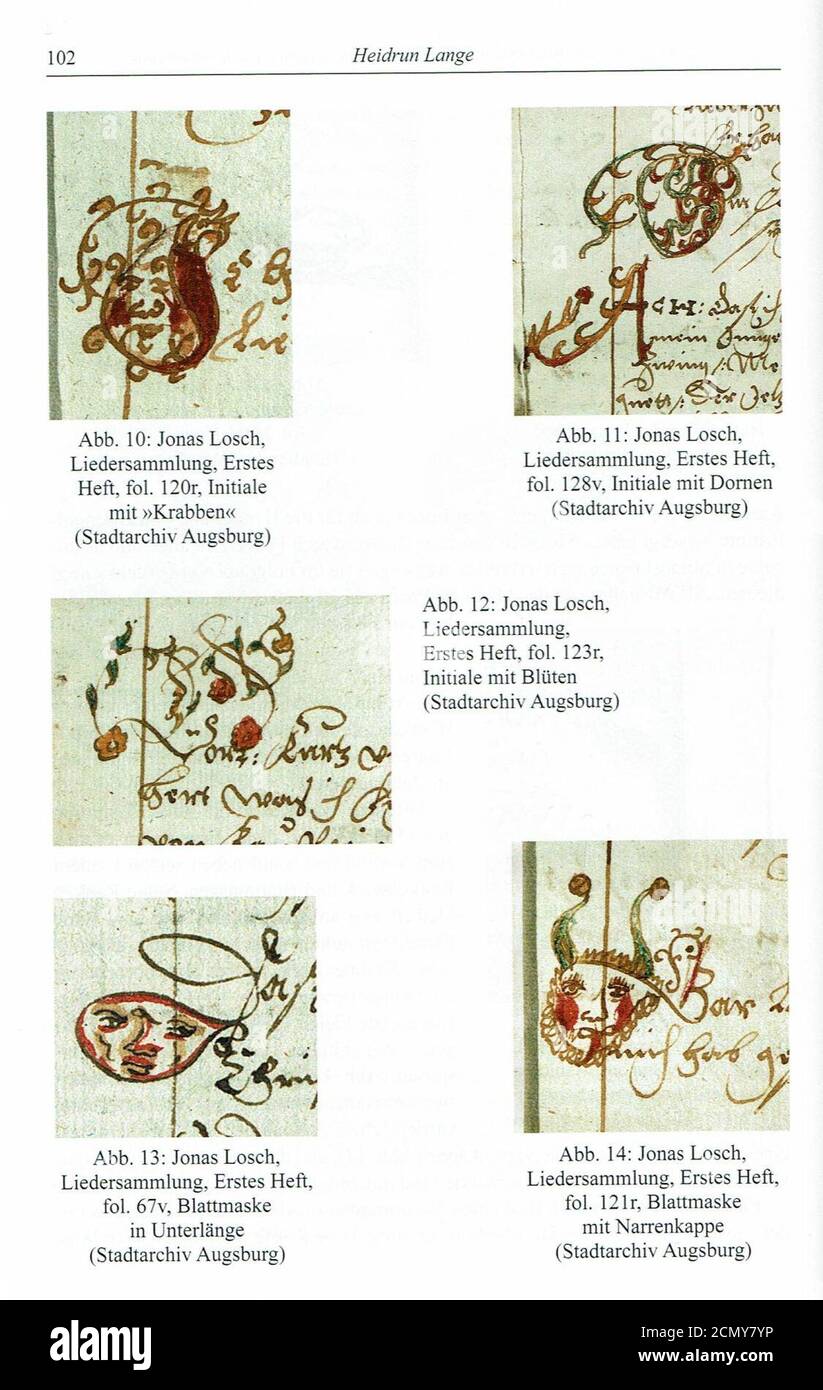 102
Heidrun Lange
Abb. 10: Jonas Losch,
Liedersammlung, Erstes
Heft, fol. 120r, Initiale
mit »Krabben«
(Stadtarchiv Augsburg)
Abb. 11: Jonas Losch,
Liedersammlung, Erstes Heft,
fol. 128v, Initiale mit Dornen
(Stadtarchiv Augsburg)
Abb. 12: Jonas Losch,
Liedersammlung,
Erstes Heft, fol. 123r,
Initiale mit Blüten
(Stadtarchiv Augsburg)
Abb. 13: Jonas Losch,
Liedersammlung, Erstes Heft,
fol. 67v, Blattmaske
in Unterlänge
(Stadtarchiv Augsburg)
Abb. 14: Jonas Losch,
Liedersammlung, Erstes Heft,
fol. 121r, Blattmaske
mit Narrenkappe
(Stadtarchiv Augsburg)
alamy
Image ID: 2CMY7YP
www.alamy.com